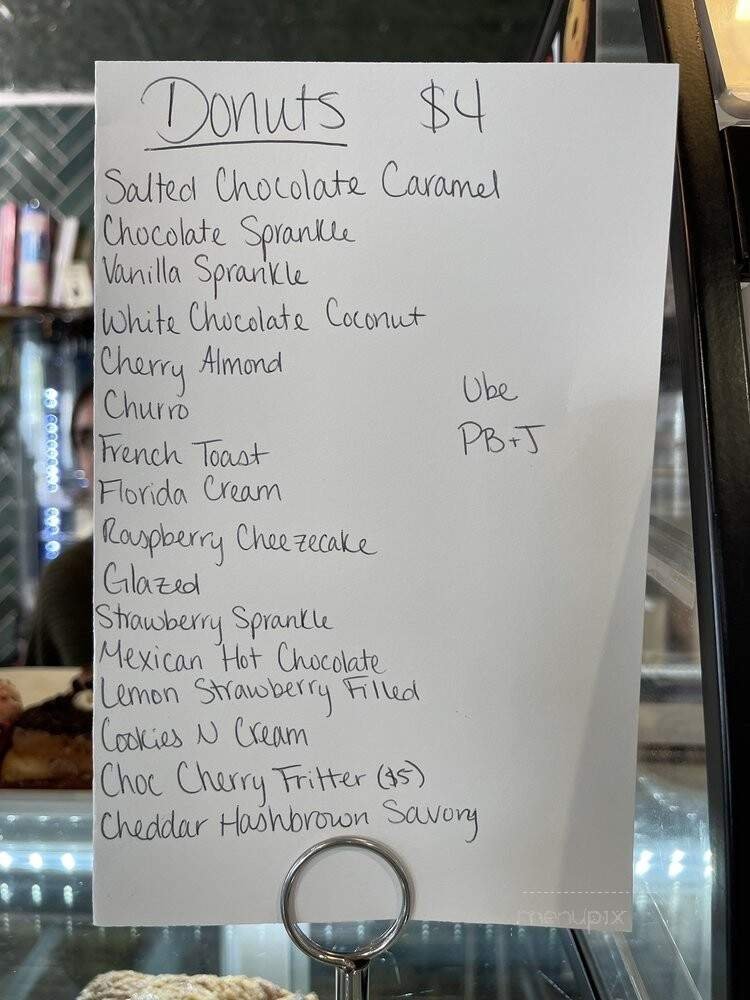 Donuts $4
Salted Chocolate Caramel
Chocolate Sprankle
Vanilla Sprankle
White Chocolate Coconut
Cherry Almond
Churro
French Toast
Florida Cream
Raspberry Cheezecake
Glazed
Strawberry Sprankle
Mexican Hot Chocolate
Lemon Strawberry Filled
Cookies N Cream
Choc Cherry Fritter ($5)
Cheddar Hashbrown Savory
Ube
PB+J
menupix